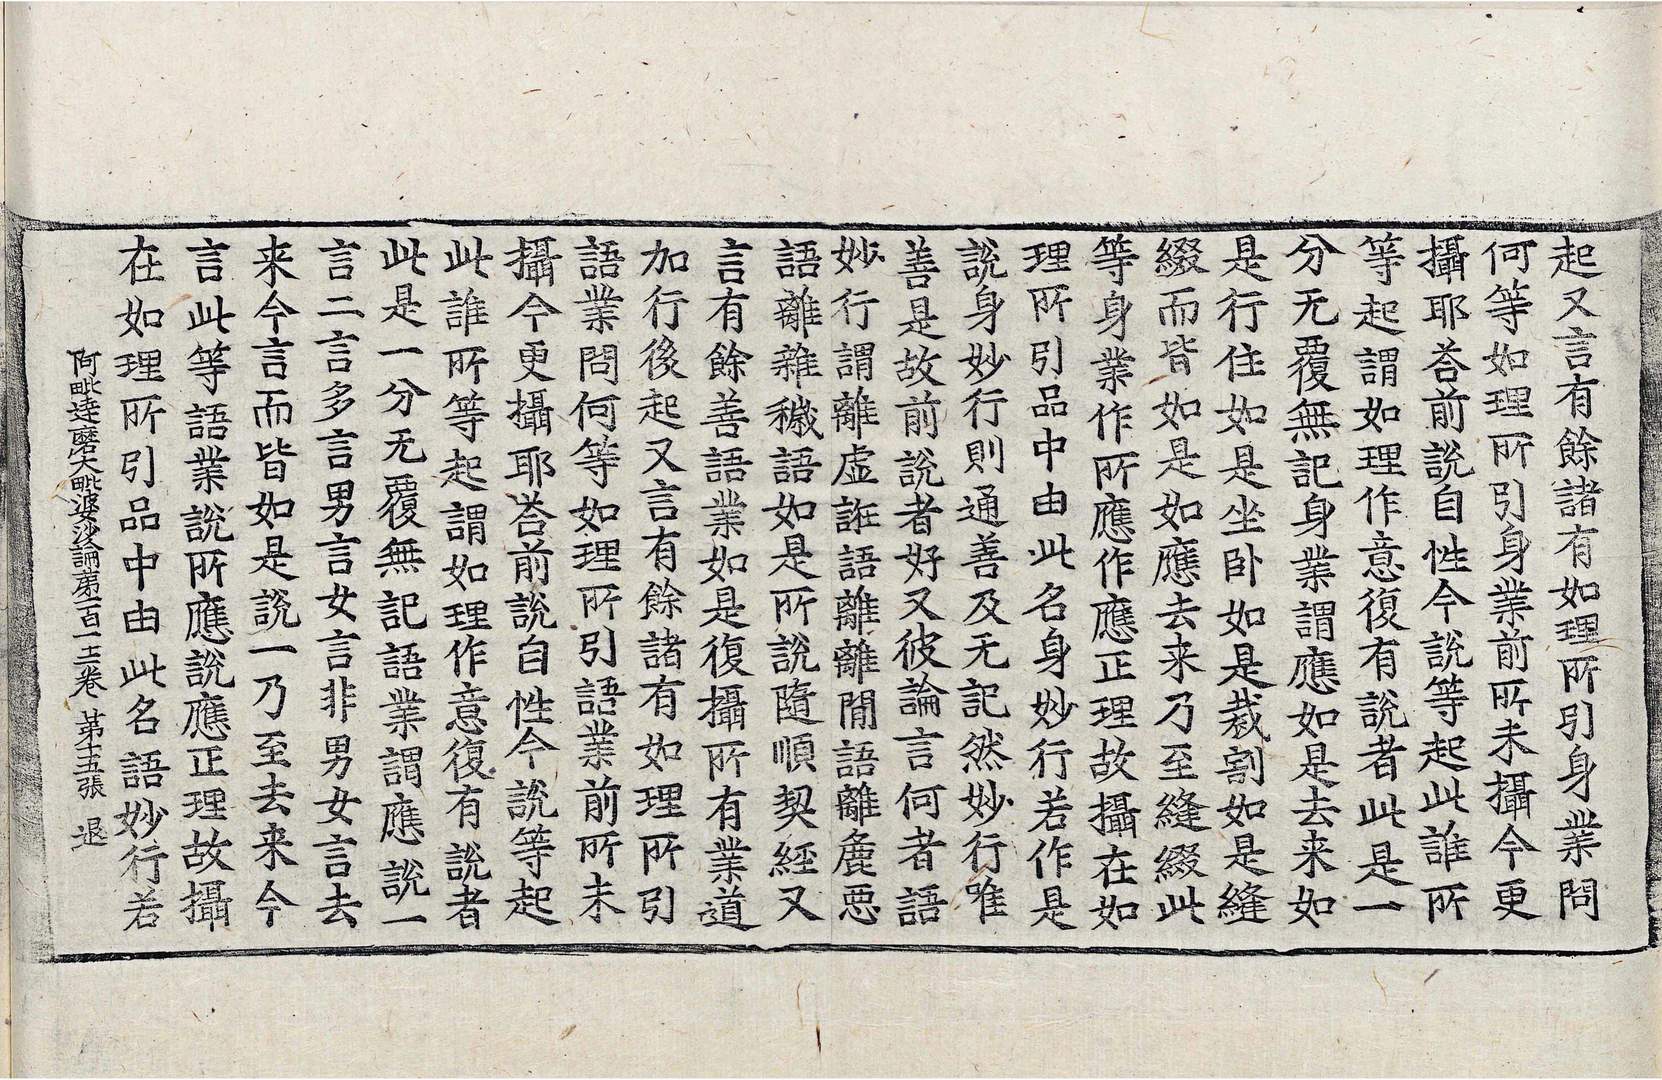 起又言有餘諸有如理所引身業問
何等如理所引身業前所未攝今更
攝耶荅前說自性今說等起此誰所
等起謂如理作意復有說者此是一
分无覆無記身業謂應如是去来如
是行住如是坐卧如是裁割如是縫
綴而皆如是如應去来乃至縫綴此
等身業作所應作應正理故攝在如
理所引品中由此名身妙行若作是
說身妙行則通善及无記然妙行唯
善是故前說者好又彼論言何者語
妙行謂離虛誑語離離間語離麁惡
語離雜穢語如是所說隨順契經又
言有餘善語業如是復攝所有業道
加行後起又言有餘諸有如理所引
語業問何等如理所引語業前所未
攝今更攝耶荅前說自性今說等起
此誰所等起謂如理作意復有說者
此是一分无覆無記語業謂應說一
言二言多言男言女言非男女言去
来今言而皆如是說一乃至去来今
言此等語業說所應說應正理故攝
在如理所引品中由此名語妙行若
阿毗達磨大毗婆沙論苐一百一十二卷 苐十五張 退